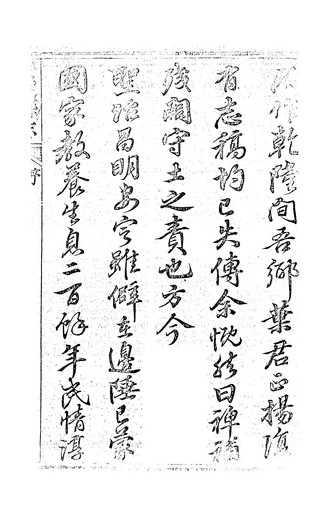 修作乾隆間吾鄉葉君正揚復
有志稿均已失傳余慨然曰裨補
殘闕守土之責也方今
聖治昌明安定雖僻在邊陲已蒙
國家教養生息二百餘年民情淳
序